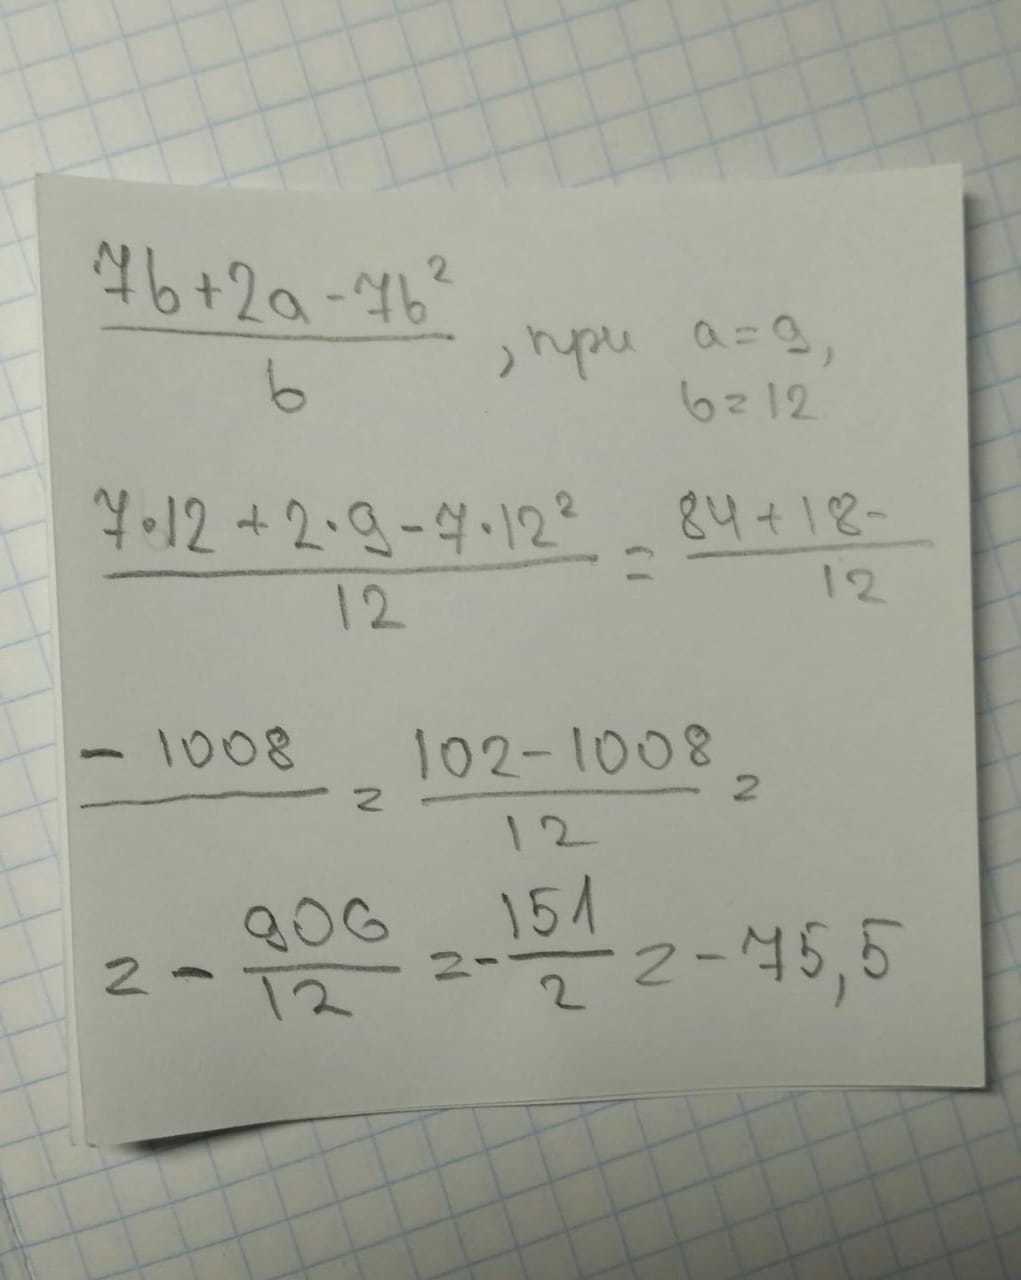 7b+2a-7b²
/b , при a=9,
b=12
7·12+2·9-7·12² / 12 = 84+18- / 12
-1008 / = 102-1008 / 12 =
= - 906/12 = - 151/2 = -75,5